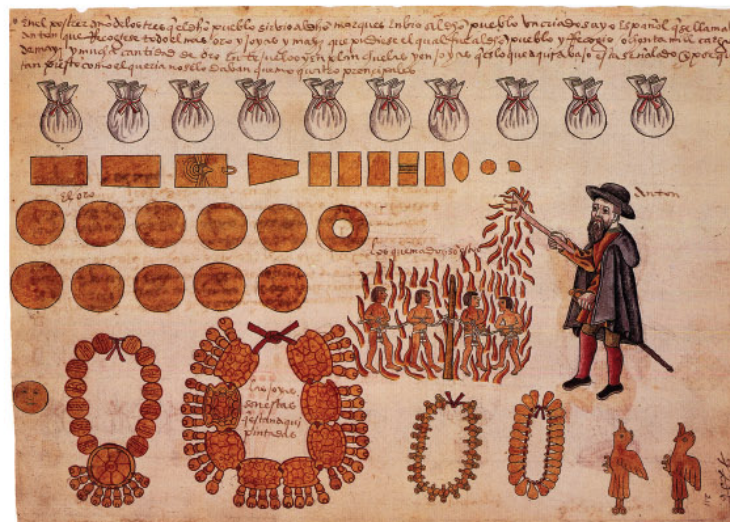 En el postrer año de los tres q el dho pueblo sirvio al dho marques enbio al dho pueblo un criado suyo español q se llama
anton que recogese todo el mas oro y joyas y mayz que pudiese el qual fue al dho pueblo y recogio ochenta mil cargas
de mayz y mucha cantidad de oro en tejuelos y en planchuelas y en joyas q es lo que aqui abajo esta señalado y porque
tan presto como el queria no se lo daban quemo quatro principales
el oro
anton
los quemados son estos
las joyas
son estas
q estan aqui
pintadas